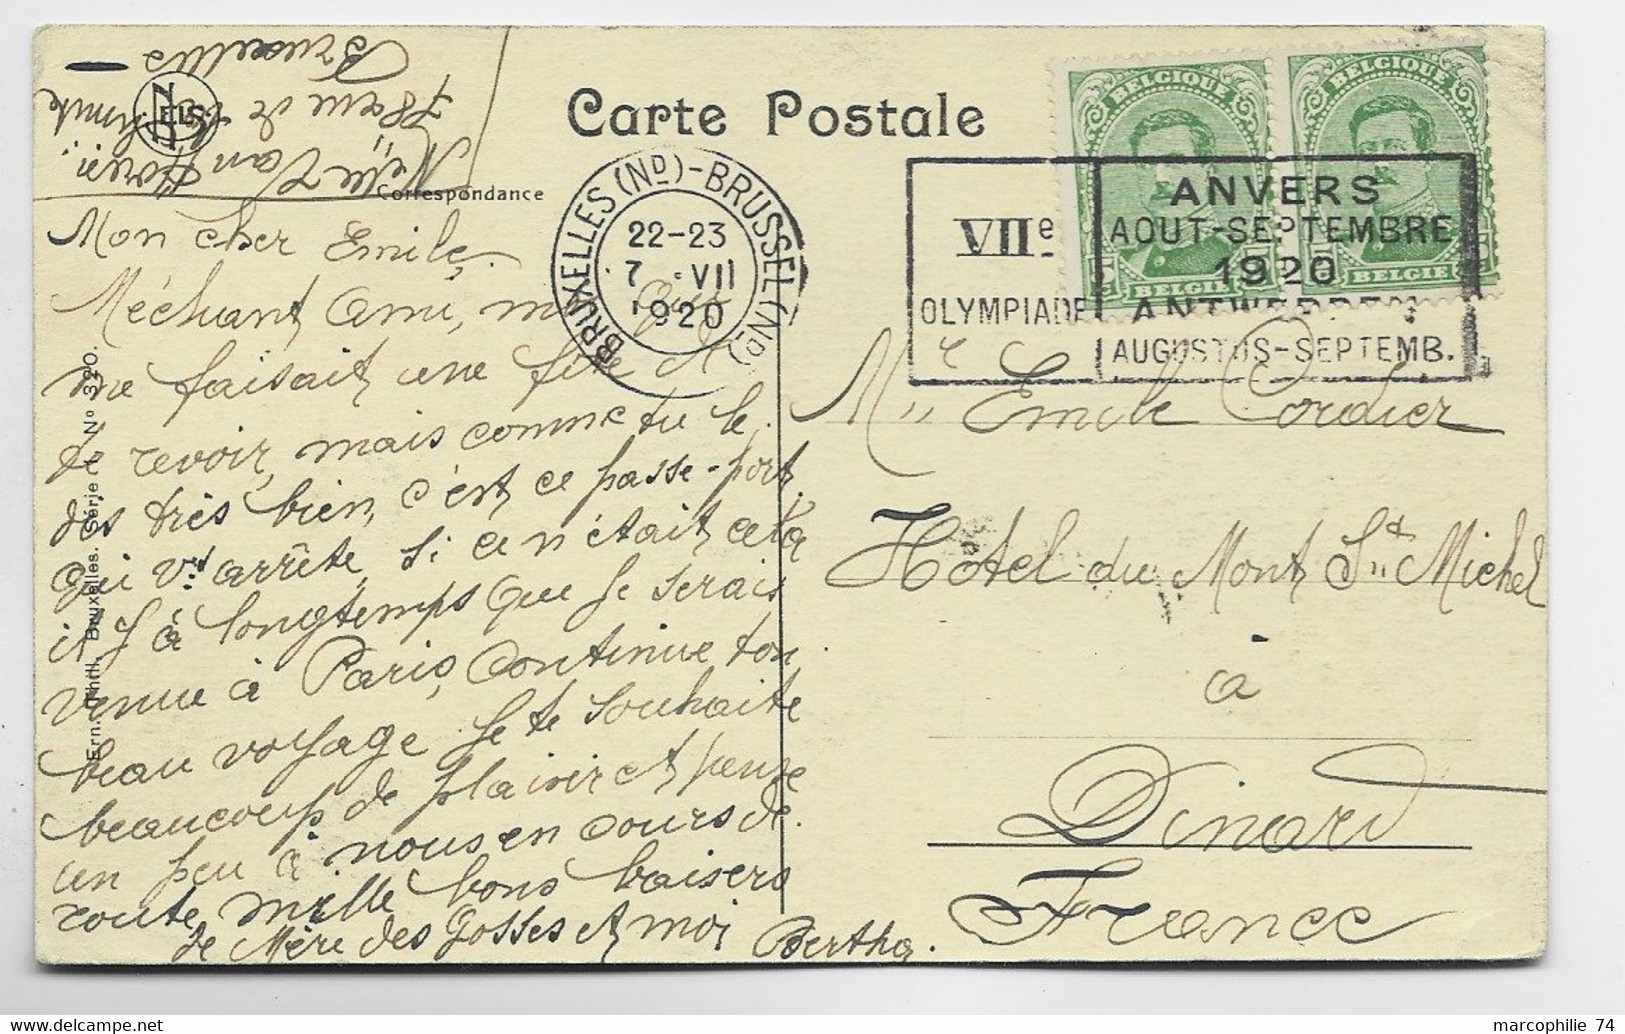 Carte Postale
Correspondance
NELS
Melle Van
Place de la
Bruxelles
BRUXELLES (ND) - BRUSSEL (ND)
22-23
7 · VII
1920
VIIe
OLYMPIADE
ANVERS
AOUT-SEPTEMBRE
1920
ANTWERPEN
AUGUSTUS-SEPTEMB.
BELGIQUE
BELGIE
BELGIQUE
BELGIE
Mon cher Emile,
Méchant Ami, moi qui
me faisait une fête de
te revoir, mais comme tu le
dis très bien, c'est ce passe-port
qui vs arrête, si ce n'était cela
il y a longtemps que je serais
venue à Paris, continue ton
beau voyage je te souhaite
beaucoup de plaisir et pense
un peu à nous en cours de
route, mille bons baisers
de Mère des Gosses et moi Bertha.
Ern. Thill, Bruxelles. Série 1 No 320.
Mr Emile Cordier
Hôtel du Mont St Michel
à
Dinard
France
marcophilie 74